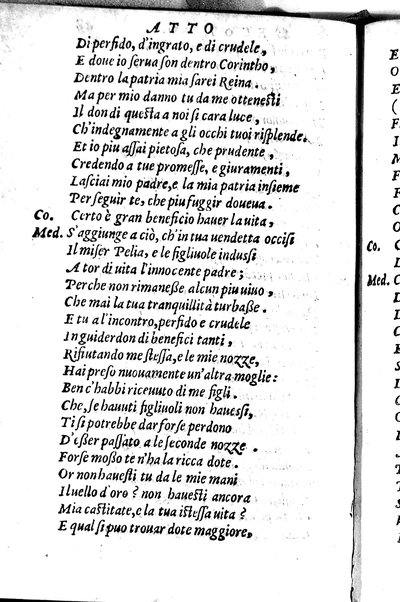 ATTO
Di perfido, d'ingrato, e di crudele,
E doue io serua son dentro Corintho,
Dentro la patria mia sarei Reina.
Ma per mio danno tu da me ottenesti
Il don di questa a noi si cara luce,
Ch'indegnamente a gli occhi tuoi risplende.
Et io piu assai pietosa, che prudente,
Credendo a tue promesse, e giuramenti,
Lasciai mio padre, e la mia patria insieme
Per seguir te, che piu fuggir doueua.
Co. Certo è gran beneficio hauer la uita,
Med. S'aggiunge a ciò, ch'in tua uendetta occisi
Il miser Pelia, e le figliuole indussi
A tor di uita l'innocente padre;
Perche non rimanesse alcun piu uiuo,
Che mai la tua tranquillità turbasse.
E tu al'incontro, perfido e crudele
In guiderdon di benefici tanti,
Rifiutando me stessa, e le mie nozze,
Hai preso nuouamente un'altra moglie:
Ben c'habbi riceuuto di me figli.
Che, se hauuti figliuoli non hauessi,
Ti si potrebbe dar forse perdono
D'esser passato a le seconde nozze.
Forse mosso te n'ha la ricca dote.
Or non hauesti tu da le mie mani
Il uello d'oro? non hauesti ancora
Mia castitate, e la tua istessa uita?
E qual si puo trouar dote maggiore,
Co.
Med.